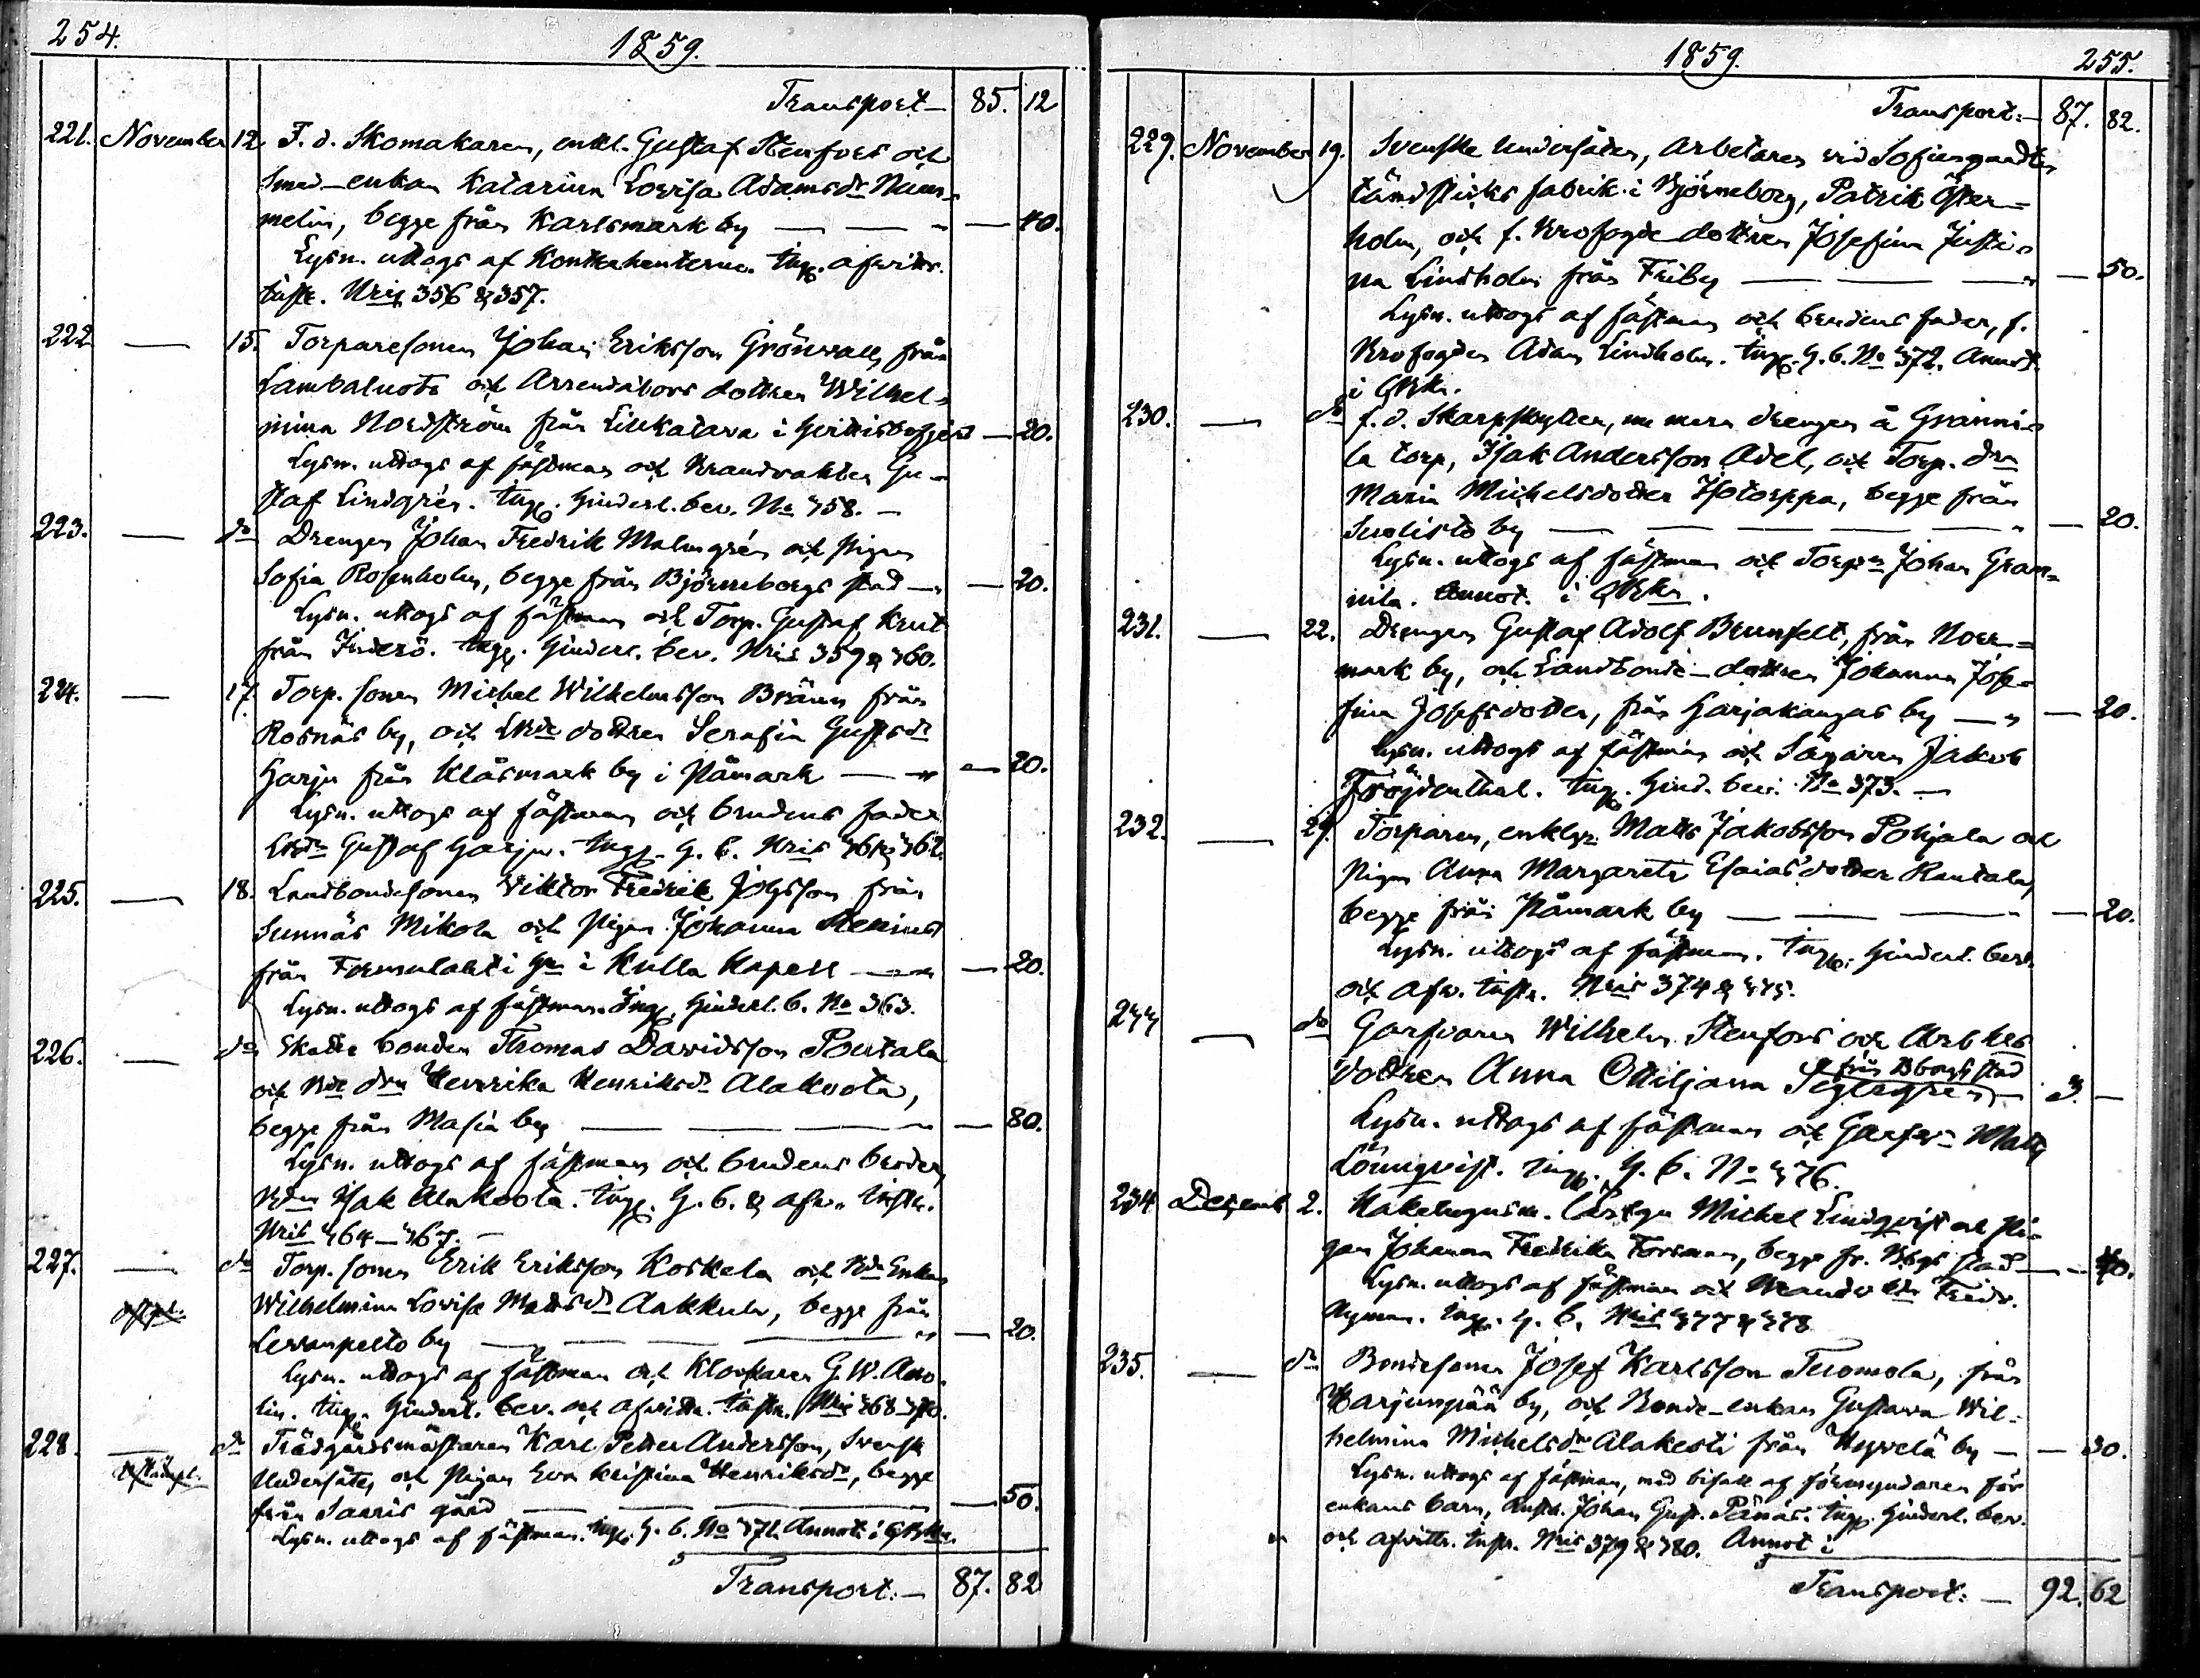 254.
1859.
Transport— 85. 12
221. November 12. F. d. Skomakaren, enkl. Gustaf Stenfors och
Smed-enkan Katarina Lovisa Adamsdr Num-
melin, begge från Karlsmark by — — " — 40.
Lysn. uttogs af Kontrahenterne. Ingg. afvittr.
instr. Nris 356 & 357.
222 — 15. Torparesonen Johan Eriksson Grönvall, från
Lambaluoto och Arrendators dottren Wilhel-
mina Nordström från Liukatava i Hvittisbofjerd — 20.
Lysn. uttogs af fästman och Brandvakten Gu-
staf Lindgrén. Ingg. Hinderl. bev. No 358. —
223. — do Drengen Johan Fredrik Malmgrén och Pigan
Sofia Rosenholm, begge från Björneborgs stad — " — 20.
Lysn. uttogs af fästman och Torp. Gustaf Krut
från Inderö. Ingg. Hinderl. bev. Nris 359 & 360.
224. — 17. Torp. sonen Michel Wilhelmsson Bränn från
Rosnäs by, och dottren Serafia Gustsdr
Harju från Klåsmark by i Påmark — " — 20.
Lysn. uttogs af fästman och brudens fader
Gustaf Harju. Ingg. H. b. Nris 361 & 362.
225. — 18. Landbondesonen Viktor Fredrik Jossson från
Sunnäs Mikola och Pigan Johanna Stenius
från i Kulla Kapell — " — 20.
Lysn. uttogs af fästman. Ingg. Hinderl. b. No 363.
226. — do Skatte bonden Thomas Davidsson Portala
och Bde drn Henrika Henriksdr Alakoota,
begge från Masia by — — — " — 80.
Lysn. uttogs af fästman och brudens broder,
Bdn Isak Alakoota. Ingg. H. b. & afv. instr.
Nris 364—367. —
227. — do Torp. sonen Erik Eriksson Koskela och Bde Enkan
Wilhelmina Lovisa Mattsdr Aakkula, begge från
Levanpelto by — — — " — 20.
Lysn. uttogs af fästman och Klockaren G. W.
lin. Ingg. Hinderl. bev. och afvittr. instr. Nris 368—370.
228. — do Trädgårdsmästaren Karl Petter Andersson, Svensk
Undersåte, och Pigan Eva Kristina Henriksdr, begge
från Saaris gård — — — — 50.
Lysn. uttogs af fästman. Ingg. H. b. No 371. Annot. i
Transport.— 87. 82
1859.
255.
Transport.— 87. 82.
229. November 19. Svenske Undersåten, Arbetaren vid Sofiegardts
tändsticks fabrik i Björneborg, Patrik Öster-
holm, och f. Krofogde dottren Josefina Justi-
na Lindholm från Friby — — " — 50.
Lysn. uttogs af fästman och brudens fader, f.
Krofogden Adam Lindholm. Ingg. H. b. No 372. Annot.
i
230. — do f. d. Skarpskytten, nu mera drengen å Granni-
la torp, Isak Andersson Adel, och Torp. drn
Maria Michelsdotter Isotorppa, begge från
Suolisto by — — — — " — 20.
Lysn. uttogs af fästman och Torpn Johan Gran-
nila. Annot. i
231. — 22. Drengen Gustaf Adolf Brunfelt, från Norr-
mark by, och Landbonde-dottren Johanna Jose-
fina Josefsdotter, från Harjakangas by — " — 20.
Lysn. uttogs af fästman och Sågaren Jakob
Fröjdenthal. Ingg. Hind. bev. No 373. —
232. — 29. Torparen, enklgn Matts Jakobsson Pohjala och
Pigan Anna Margareta Esaiasdotter Rantala,
begge från Påmark by — — — " — 20.
Lysn. uttogs af fästman. Ingg. Hinderl. bev.
och afv. instr. Nris 374 & 375.
233 — do Garfvaren Wilhelm Stenfors och
från Bborgs stad
dottren Anna Ottiljana Seglagren — 3. —
Lysn. uttogs af fästman och Garfvn Matts
Lönnqvist. Ingg. H. b. No 376.
234 Decemb 2. Kakelugnsm. Michel Lindqvist och Pi-
gan Johanna Fredrika Forsman, begge fr. Bbgs stad — — 40.
Lysn. uttogs af fästman och Brandv Fredr.
Nyman. Ingg. H. b. Nris 377 & 378
235. — do Bondesonen Josef Karlsson Tuomola, från
Harjunpää by, och Bonde-enkan Gustava Wil-
helmina Michelsdr Alakesti från Hyvelä by — — 30.
Lysn. uttogs af fästman, med bifall af förmyndaren för
enkans barn, Johan Gust. Pänäs. Ingg. Hinderl. bev.
och afvittr. instr. Nris 379 & 380. Annot i
Transport: — 92. 62